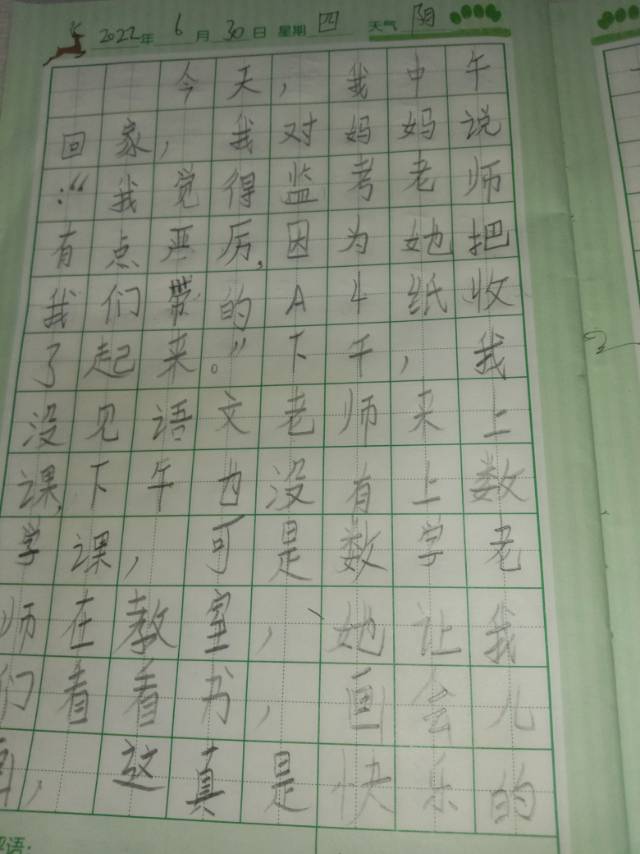 2022年6月30日 星期四 天气 阴
今天，我中午
回家，我对妈妈说
：“我觉得监考老师
有点严厉，因为她把
我们带的A4纸收
了起来。”下午，我
没见语文老师来上
课，下午也没有上数
学课，可是数字老
师在教室，她让我
们看看书，画会儿
画，这真是快乐的